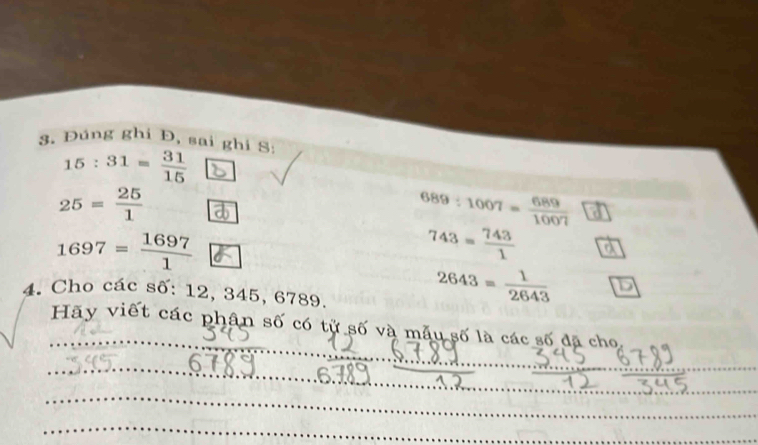 3. Đúng ghi Đ, sai ghi S:
15 : 31 = 31/15
689 : 1007 = 689/1007 đ
25 = 25/1 đ
743 = 743/1 đ
1697 = 1697/1
2643 = 1/2643
4. Cho các số: 12, 345, 6789.
Hãy viết các phân số có tử số và mẫu số là các số đã cho.
12/345 345/6789 12/6789 6789/12 345/12 6789/345